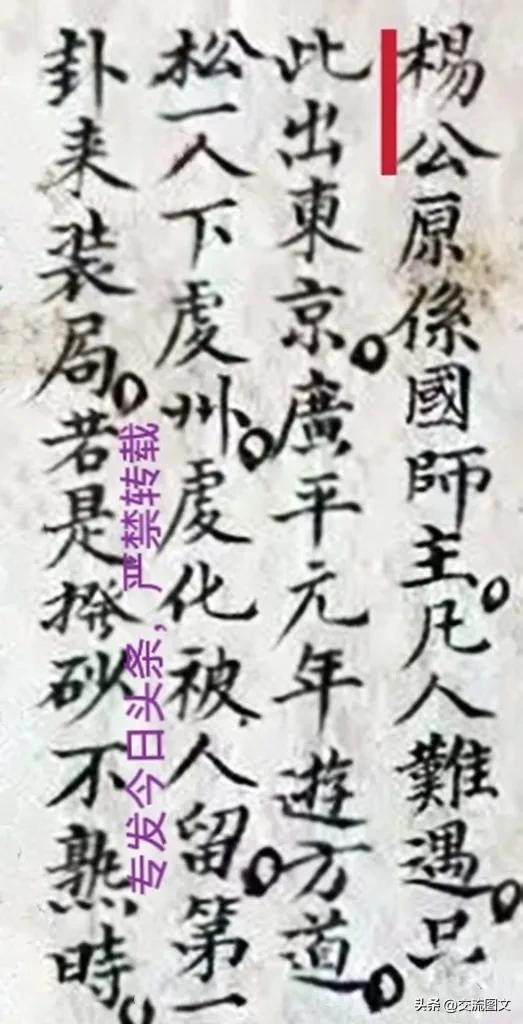 楊公原係國師主。凡人難遇。只
此出東京。廣平元年遊方道。
松一人下虔州。虔化被人留。第一
卦来装局。若是撥砂不熟時。
专发今日头条，严禁转载
头条 @交流图文